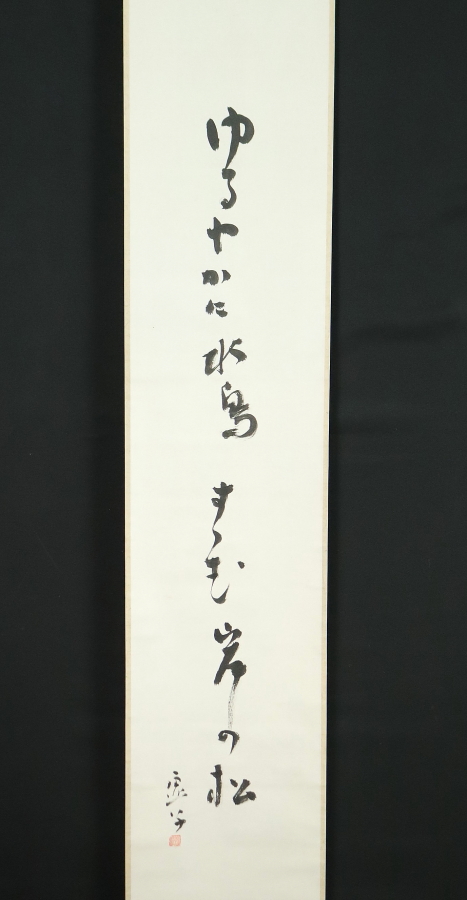 ゆるやかに水鳥すゝむ岸の松
虚子